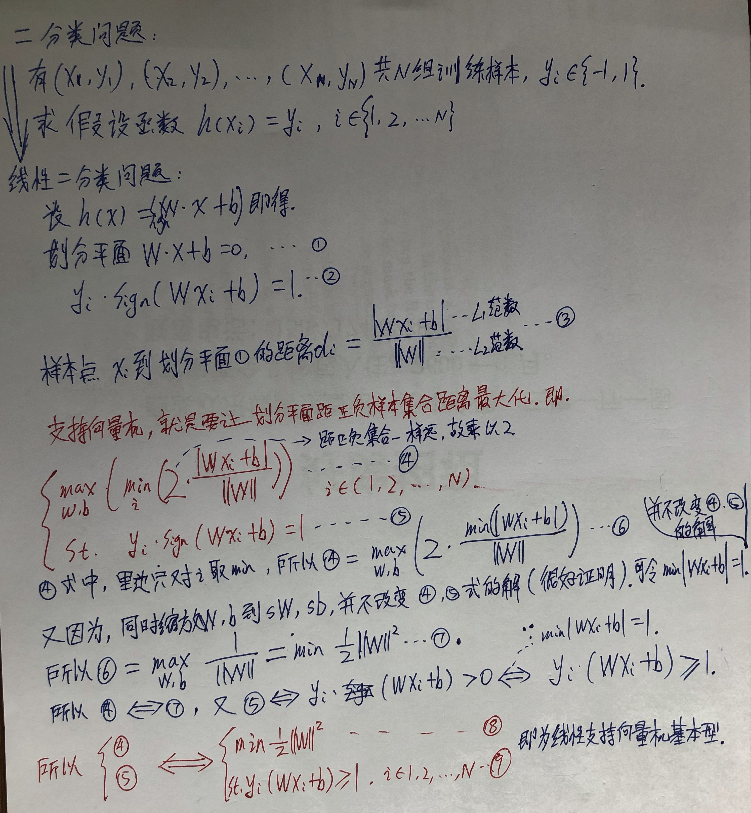 二分类问题:
有(x₁,y₁), (x₂,y₂), ..., (x_N,y_N) 共N组训练样本, yᵢ∈{-1,1}.
求假设函数 h(xᵢ)=yᵢ, i∈{1,2,...N}
线性二分类问题:
设 h(x)=(W·x+b)即得.
划分平面 W·x+b=0, ... ①
yᵢ·sign(Wxᵢ+b)=1. ...②
样本点 xᵢ到划分平面①的距离dᵢ = |Wxᵢ+b| / ||W|| ...L₁范数 ...L₂范数 ...③
支持向量机,就是要让划分平面距正负样本集合距离最大化.即.
→距正负集合一样远,故乘以2
max W,b (min i (2·|Wxᵢ+b| / ||W||)) ...... ④ i∈(1,2,...,N).
st. yᵢ·sign(Wxᵢ+b)=1 ----- ⑤
④式中,里边只对i取min,所以④= max W,b (2·min(|Wxᵢ+b|) / ||W||) ...⑥ (并不改变④.⑤的解
又因为,同时缩放W,b到sW,sb,并不改变④,⑤式的解(很好证明).可令min|Wxᵢ+b|=1.
所以⑥= max W,b 1/||W|| = min ½||W||² ...⑦. ∵min|Wxᵢ+b|=1.
所以④⟺⑦,又⑤⟺yᵢ·(Wxᵢ+b)>0⟺yᵢ·(Wxᵢ+b)≥1.
所以{④ ⑤ ⟺ {min ½||W||² - - - - ⑧ 即为线性支持向量机基本型.
st. yᵢ(Wxᵢ+b)≥1. i∈1,2,...,N..⑨